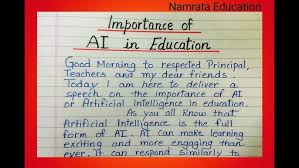 Namrata Education
Importance of
AI in Education
Good Morning to respected Principal,
Teachers and my dear friends.
Today I am here to deliver a
speech on the importance of AI
or Artificial Intelligence in education.
As you all Know that
Artificial Intelligence is the full
form of AI. AI can make learning
exciting and more engaging than
ever. It can respond similarly to